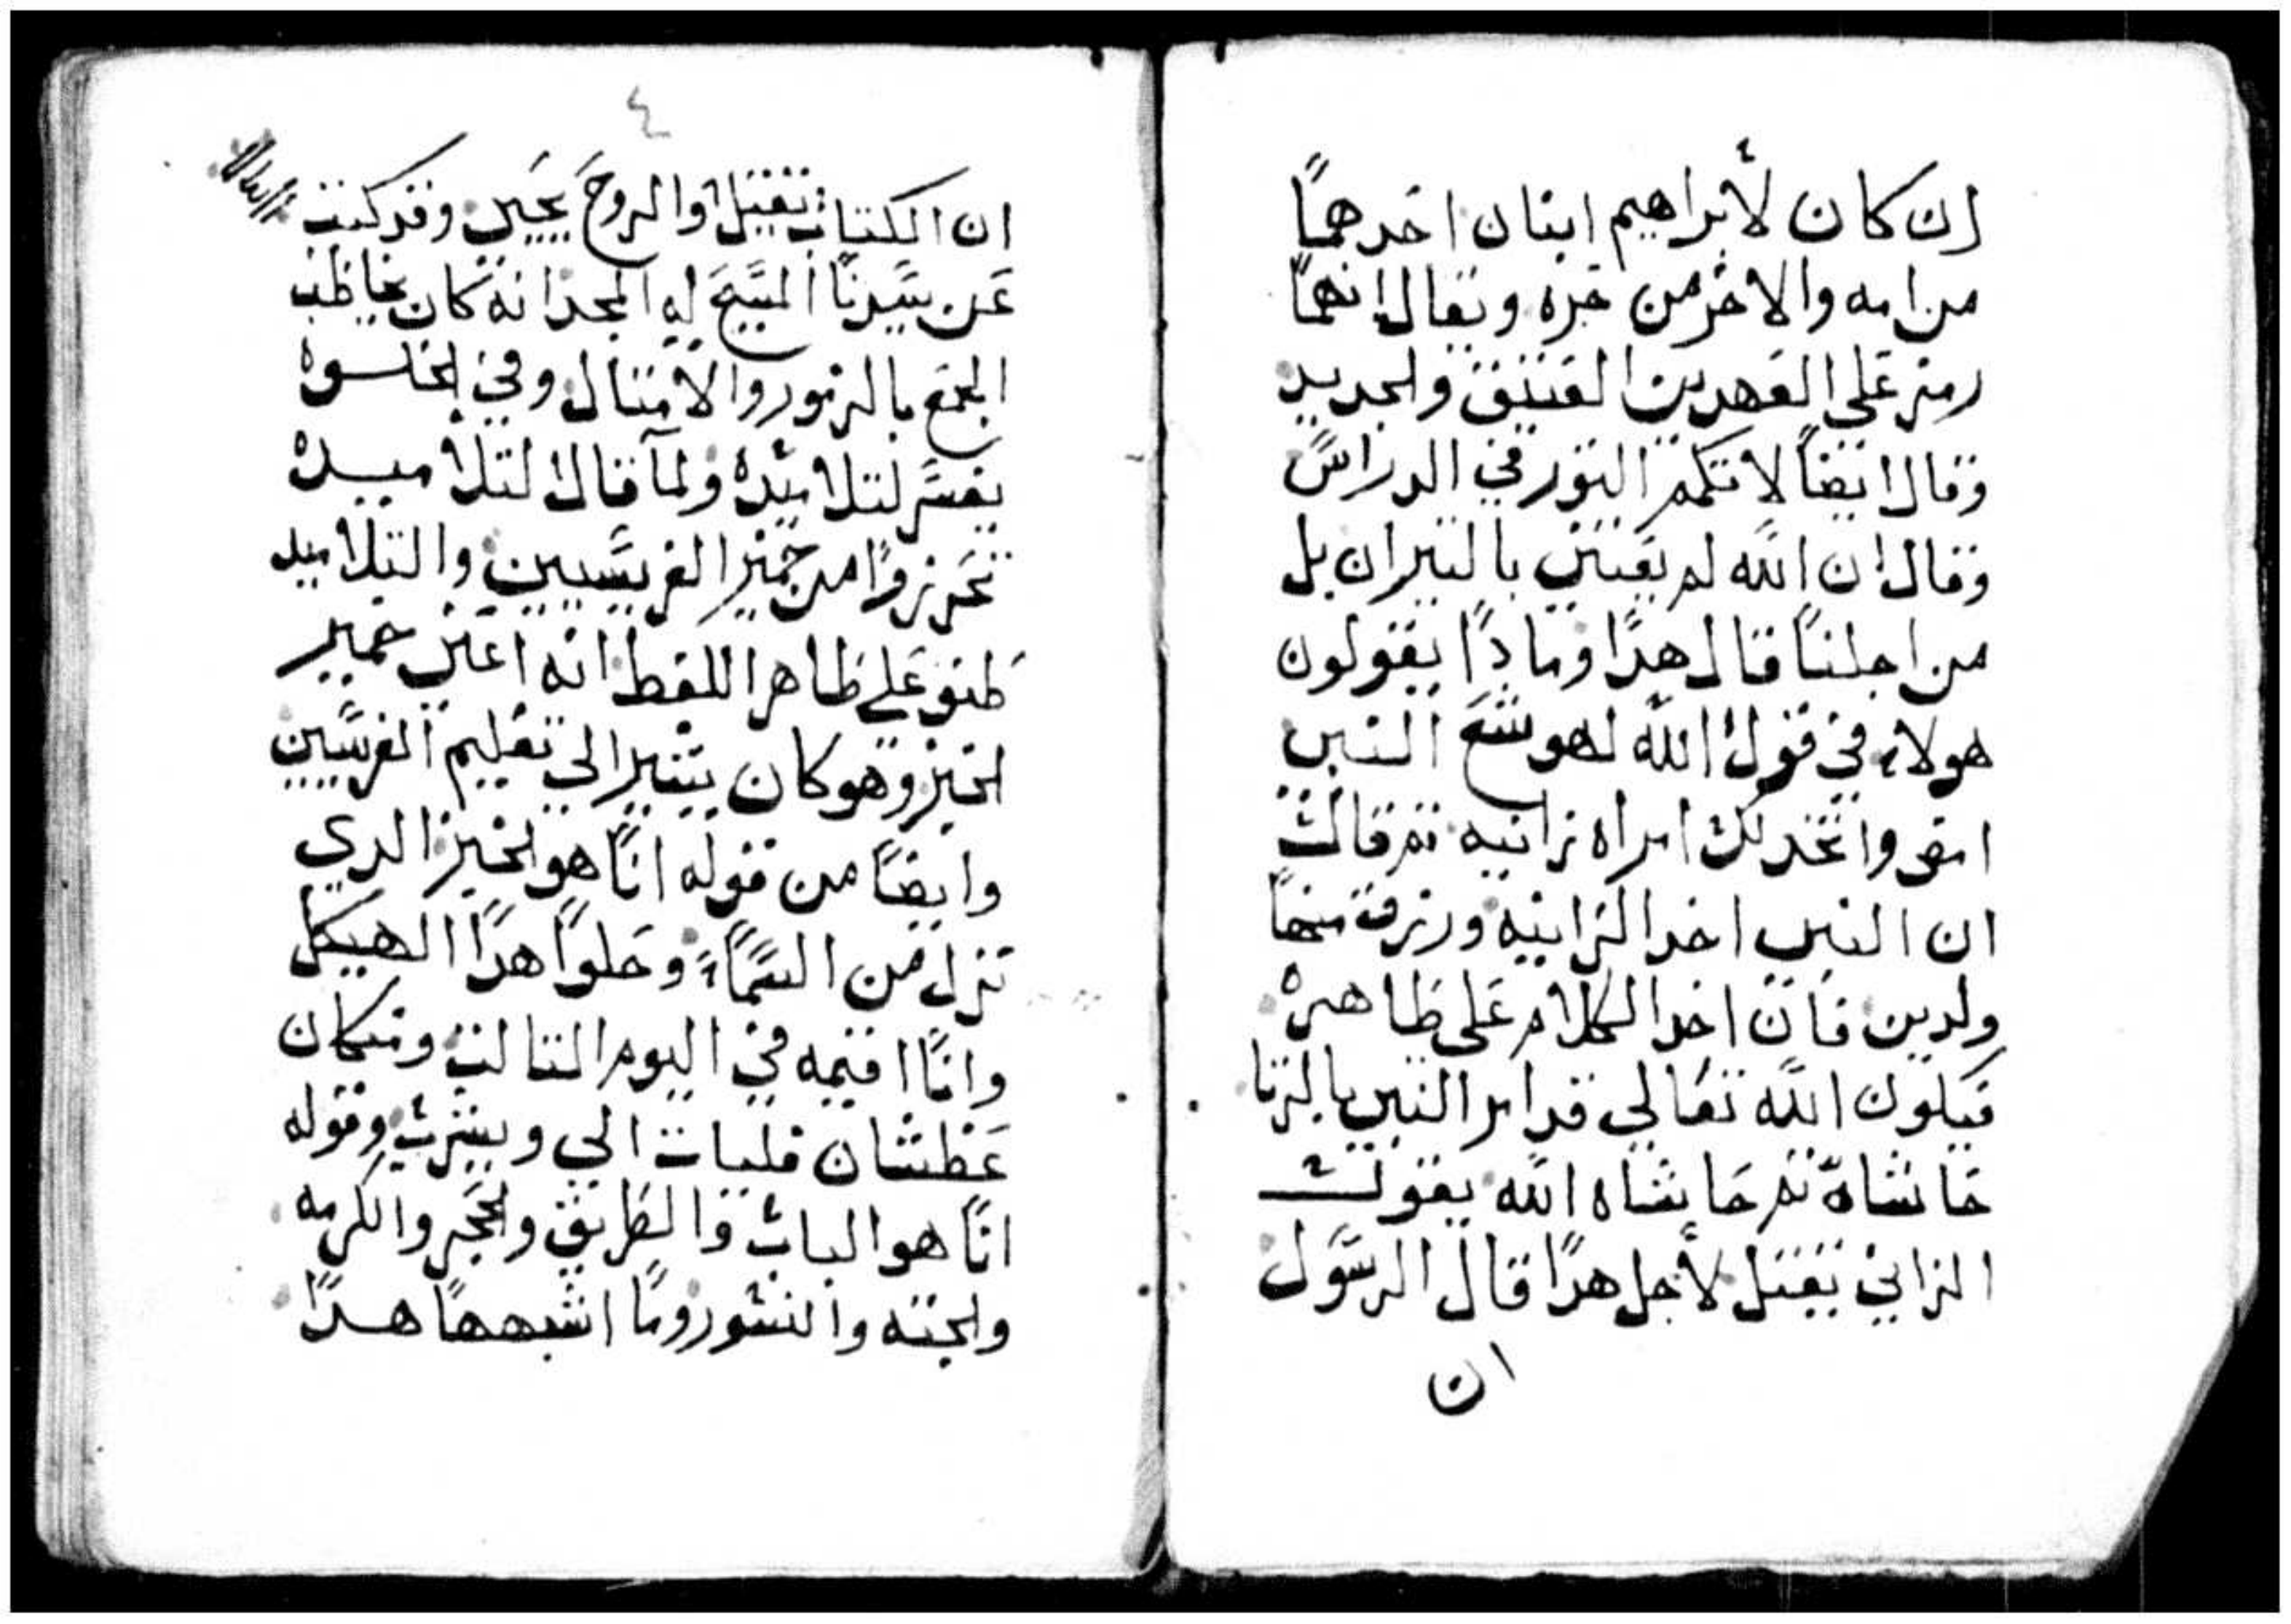 ان كان لأبراهيم ابنان احدهما
من امه والاخر من حره وتقال انهما
رمز على العهدين العتيق والجديد
وقال ايضاً لا تكمم التور في الدراس
وقال ان الله لم يعتني بالتيران بل
من اجلنا قال هدا ومادا يقولون
هولاء في قول الله لهوشع النبي
امض واتخد لك امراه زانيه تم قالت
ان النبي اخد الزانيه ورزق منها
ولدين فان اخد الكلام على ظاهره
فيكون الله تعالي قد امر النبي بالزنا
حاشاه تم حاشاه الله يقول
الزاني يقتل لأجل هدا قال الرسول
ان
٤
ان الكتاب يقتل والروح يحيي وقد كتب
عن سيدنا المسيح له المجد انه كان يخاطب
الجمع بالرموز والامتال وفي الخلوه
يفسر لتلاميده ولما قال لتلاميده
تحرزوا من خمير الفريسيين والتلاميد
ظنو على ظاهر اللفظ انه اعني خمير
الخبز وهو كان يشير الي تعليم الفريسيين
وايضا من قوله انا هو الخبز الدي
نزل من السماء وحلوا هدا الهيكل
وانا اقيمه في اليوم التالت ومن كان
عطشان فليات الي ويشرب وقوله
انا هو الباب والطريق والحجر والكرمه
والجنه والنشور وما اشبهها هدا